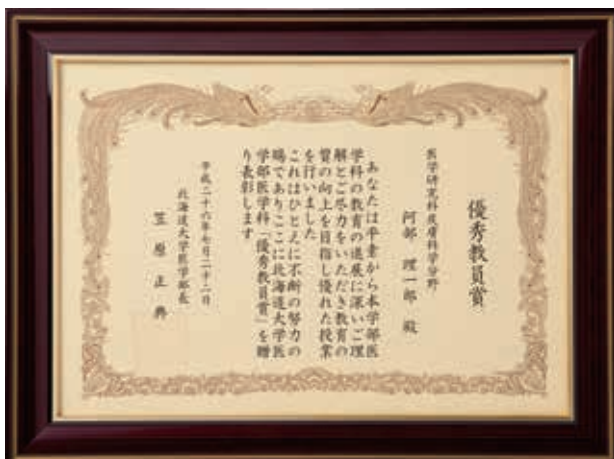 優秀教員賞
医学研究科皮膚科学分野
阿部 理一郎 殿
あなたは平素から本学部医
学科の教育の進展に深いご理
解とご尽力をいただき教育の
質の向上を目指し優れた授業
を行いました
これはひとえに不断の努力の
賜でありここに北海道大学医
学部医学科「優秀教員賞」を贈
り表彰します
平成二十六年七月二十二日
北海道大学医学部長
笠原正典